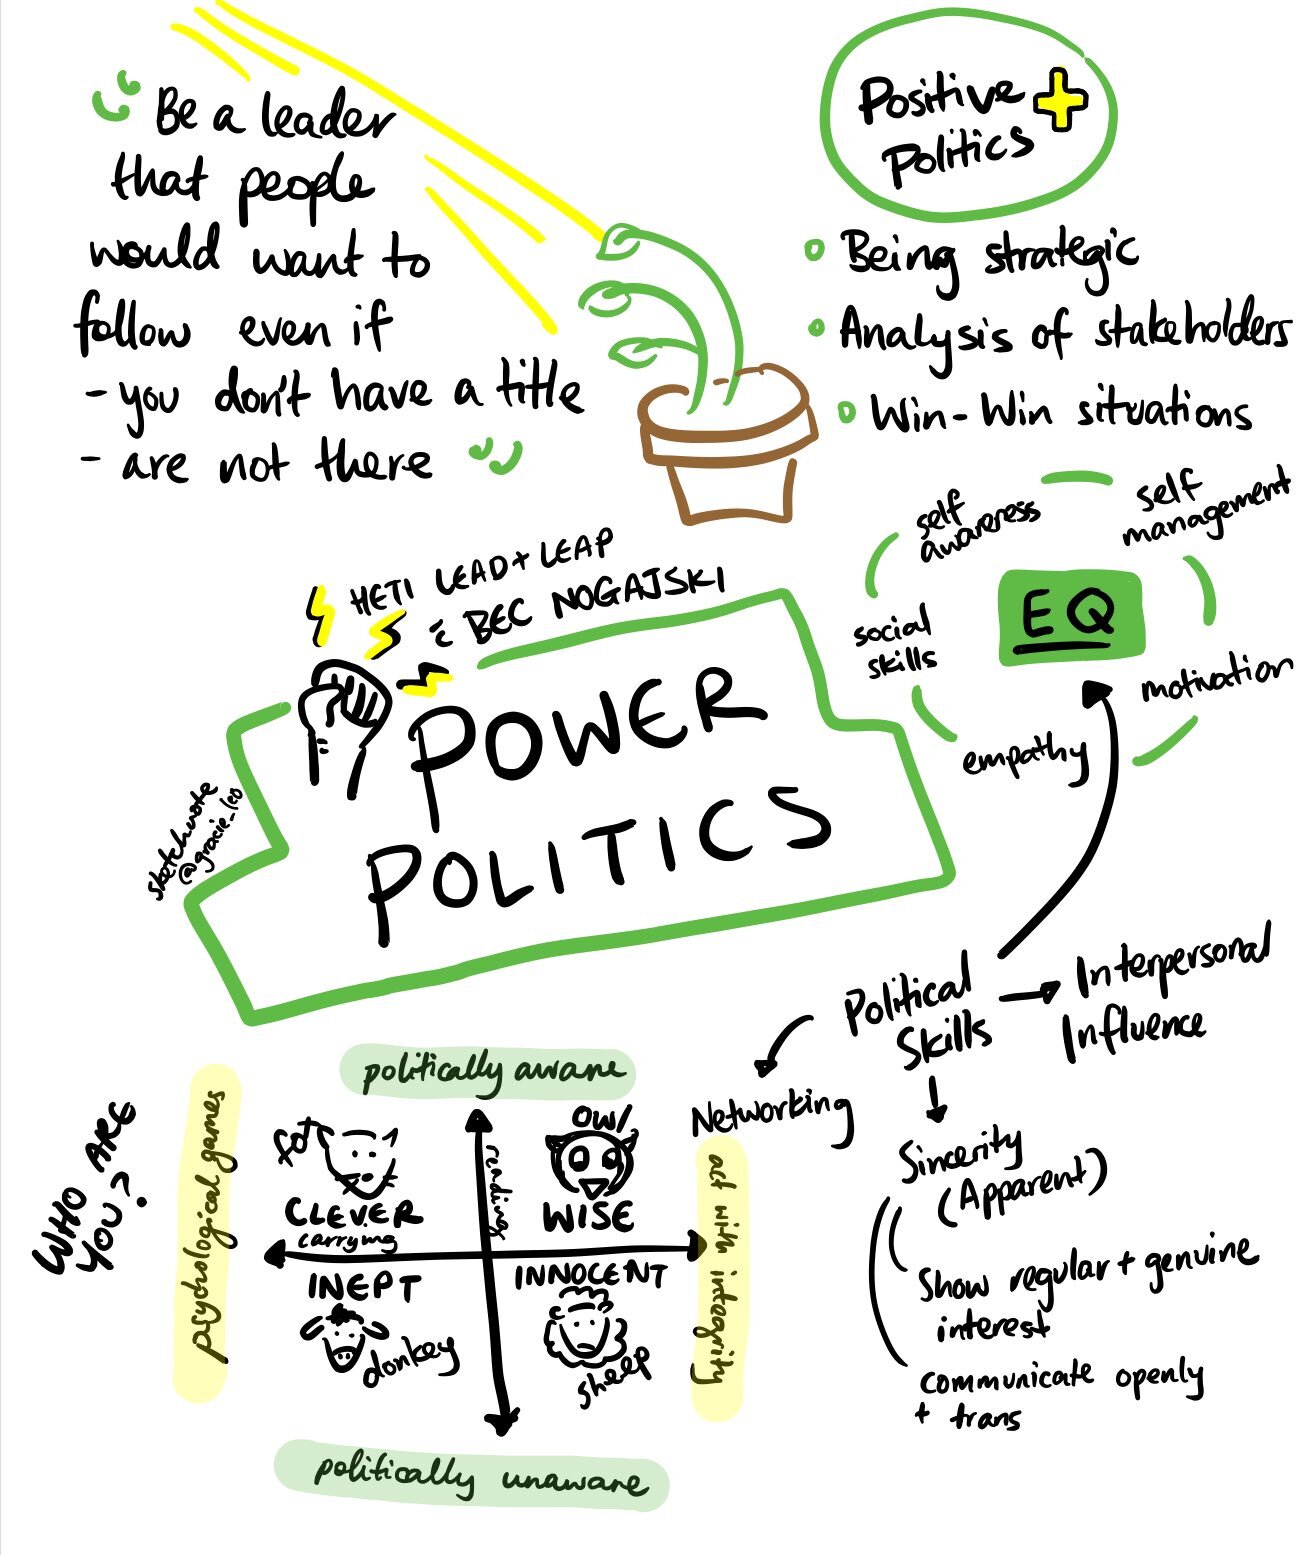 Be a leader
that people
would want to
follow even if
- you don't have a title
- are not there
Positive
Politics
Being strategic
Analysis of stakeholders
Win-Win situations
self
awareness
self
management
EQ
social
skills
motivation
empathy
HETI LEAD + LEAP
BEC NOGAJSKI
POWER
POLITICS
sketchnote
@gracie_leo
Political
Skills
Interpersonal
Influence
Networking
Sincerity
(Apparent)
Show regular + genuine
interest
communicate openly
+ trans
WHO ARE
YOU?
politically aware
psychological games
act with integrity
politically unaware
reading
carrying
CLEVER
owl
WISE
INEPT
donkey
INNOCENT
sheep